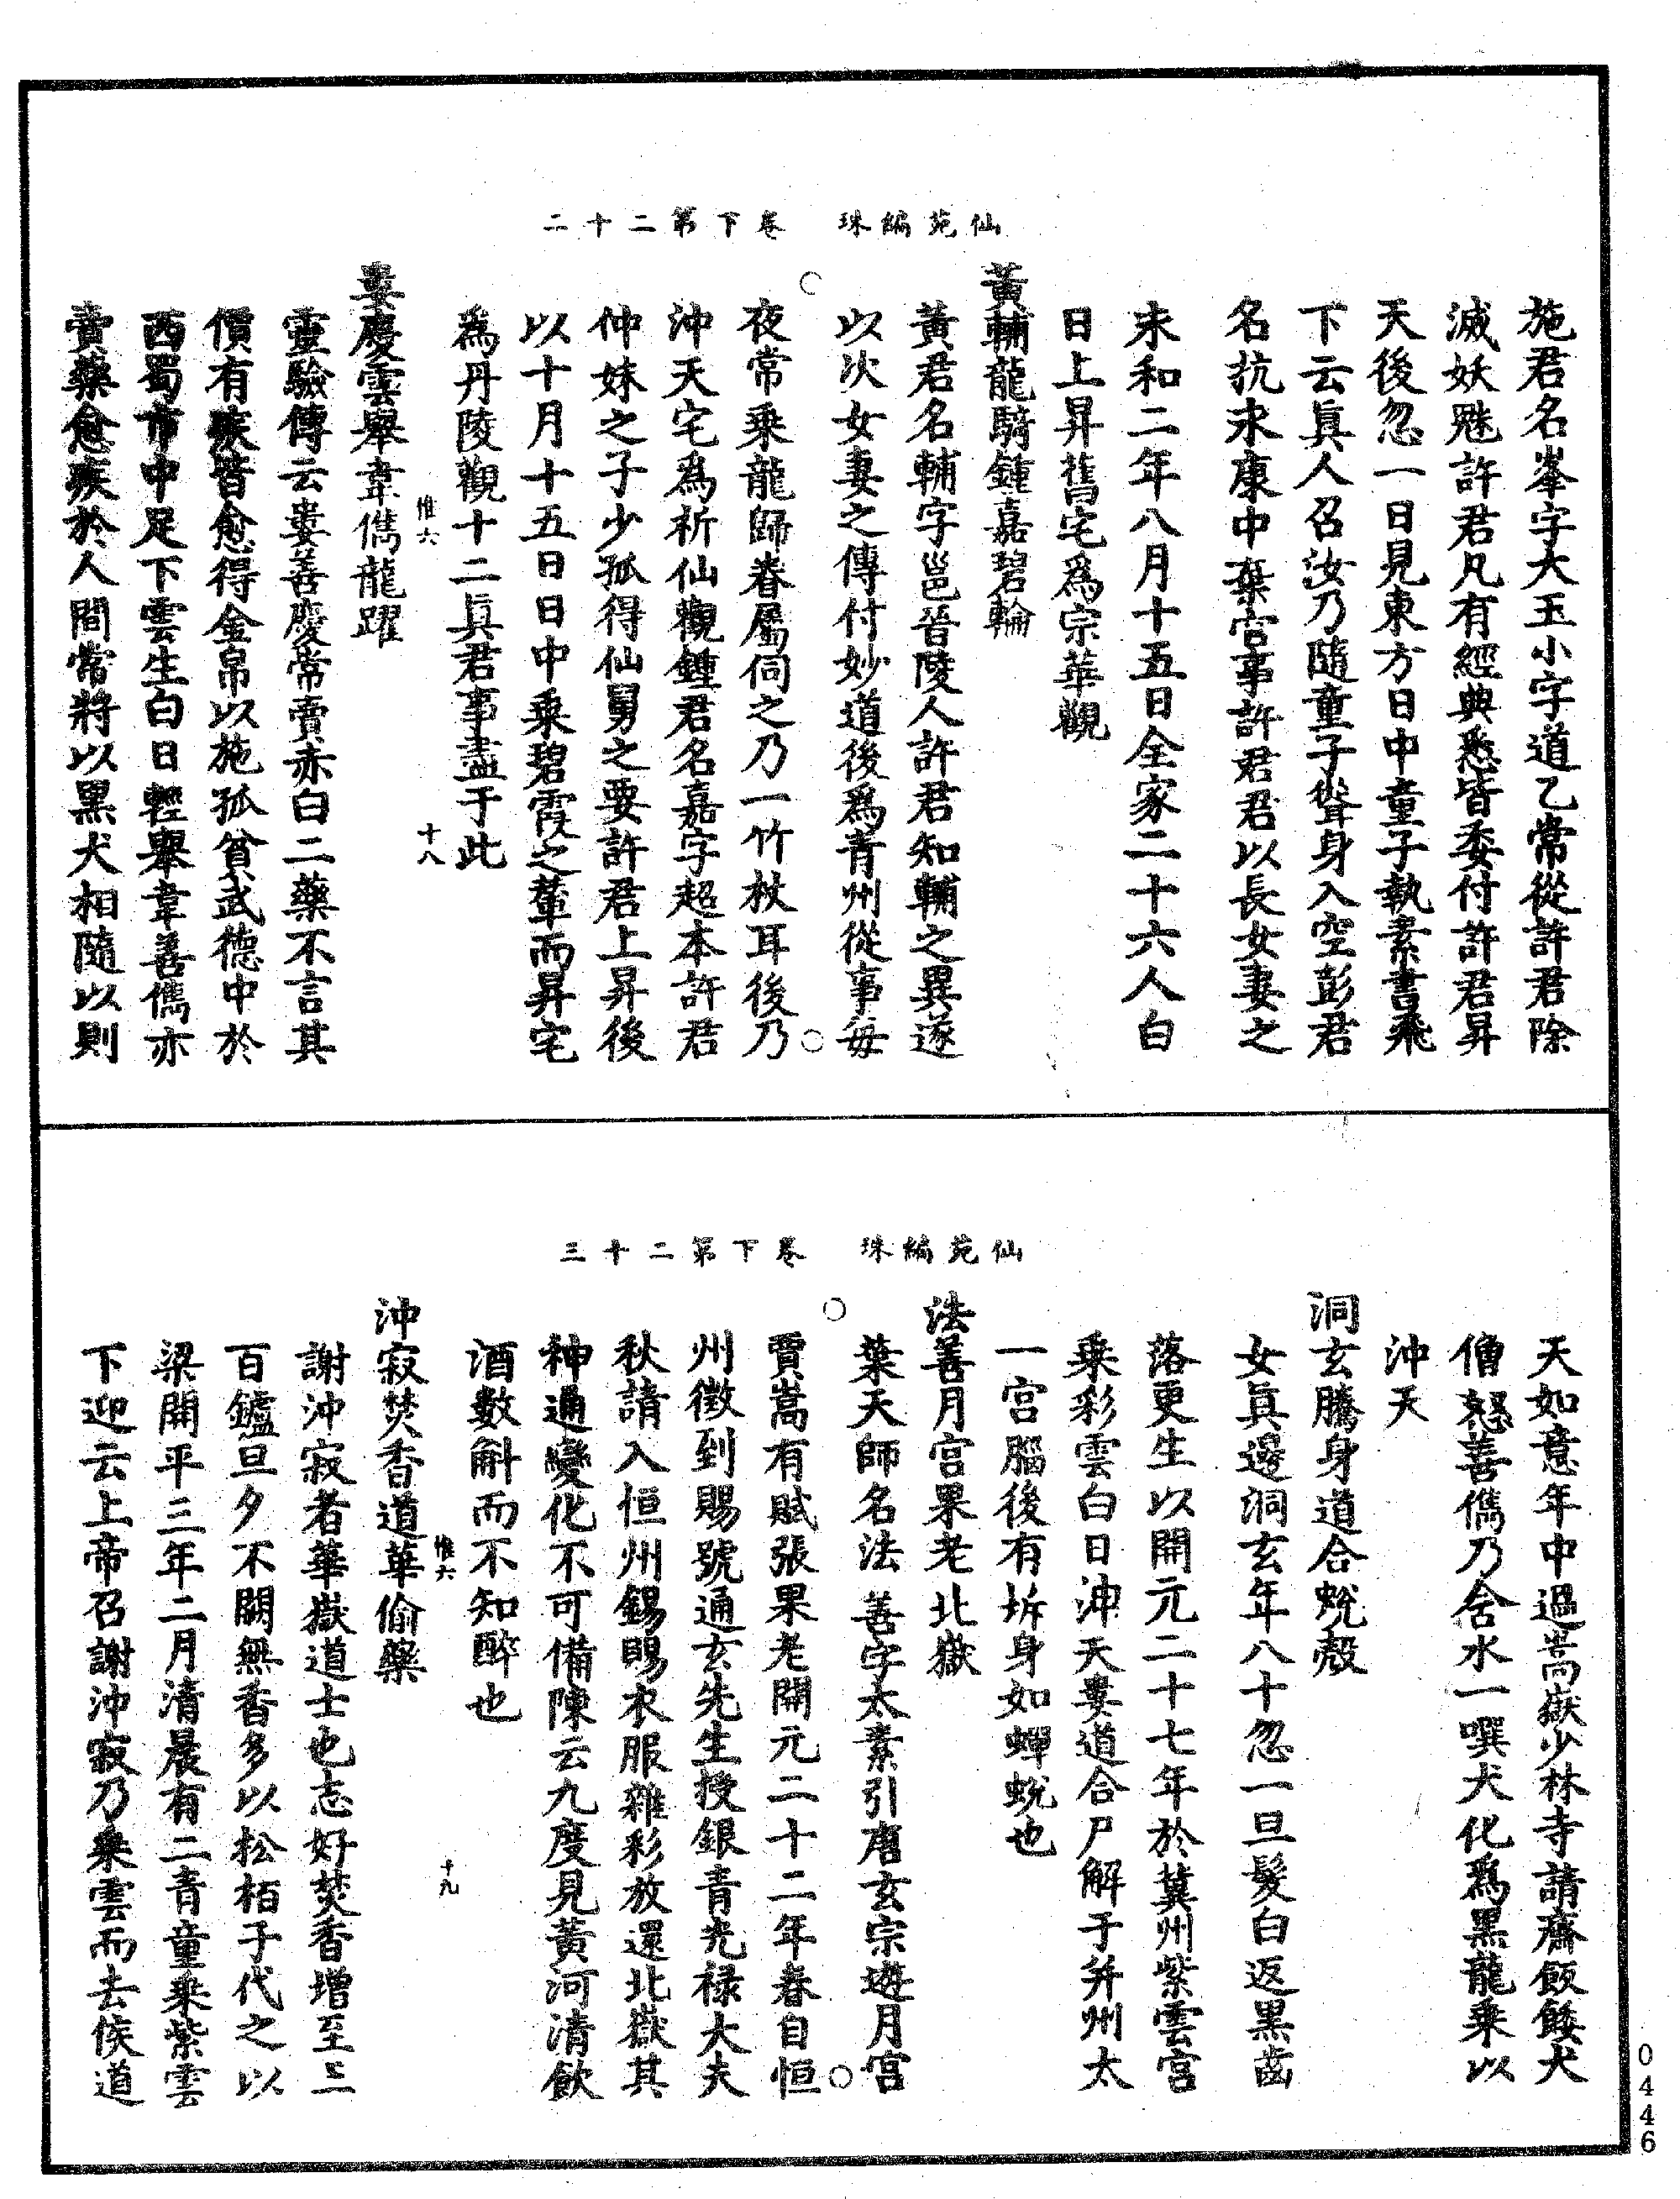 仙苑編珠　卷下第二十二
施君名峯字大玉小字道乙常從許君除
滅妖魅許君凡有經典悉皆委付許君昇
天後忽一日見東方日中童子執素書飛
下云真人召汝乃隨童子聳身入空彭君
名抗永康中棄官事許君君以長女妻之
宋和二年八月十五日全家二十六人白
日上昇舊宅爲宗華觀
黃輔龍騎鍾嘉碧輪
黃君名輔字邕晉陵人許君知輔之異遂
以次女妻之傳付妙道後爲青州從事每
夜常乘龍歸眷屬伺之乃一竹杖耳後乃
沖天宅爲祈仙觀鍾君名嘉字超本許君
仲妹之子少孤得仙舅之要許君上昇後
以十月十五日日中乘碧霞之輦而昇宅
爲丹陵觀十二真君事盡于此
惟六　十八
婁慶雲舉韋儁龍躍
靈驗傳云婁善慶常賣赤白二藥不言其
價有疾皆愈得金帛以施孤貧武德中於
西蜀市中足下雲生白日輕舉韋善儁亦
賣藥愈疾於人間常將以黑犬相隨以則
仙苑編珠　卷下第二十三
天如意年中過嵩嶽少林寺請齋飯餧犬
僧怒善儁乃含水一噀犬化爲黑龍乘以
沖天
洞玄騰身道合蛻殼
女真邊洞玄年八十忽一旦髮白返黑齒
落更生以開元二十七年於冀州紫雲宮
乘彩雲白日沖天婁道合尸解于并州太
一宮腦後有坼身如蟬蛻也
法善月宮果老北嶽
葉天師名法善字太素引唐玄宗遊月宮
賈嵩有賦張果老開元二十二年春自恒
州徵到賜號通玄先生授銀青光祿大夫
秋請入恒州錫賜衣服雜彩放還北嶽其
神通變化不可備陳云九度見黃河清飲
酒數斛而不知醉也
惟六　十九
沖寂焚香道華偷藥
謝沖寂者華嶽道士也志好焚香增至三
百鑪旦夕不闕無香多以松栢子代之以
梁開平三年二月清晨有二青童乘紫雲
下迎云上帝召謝沖寂乃乘雲而去侯道
0446